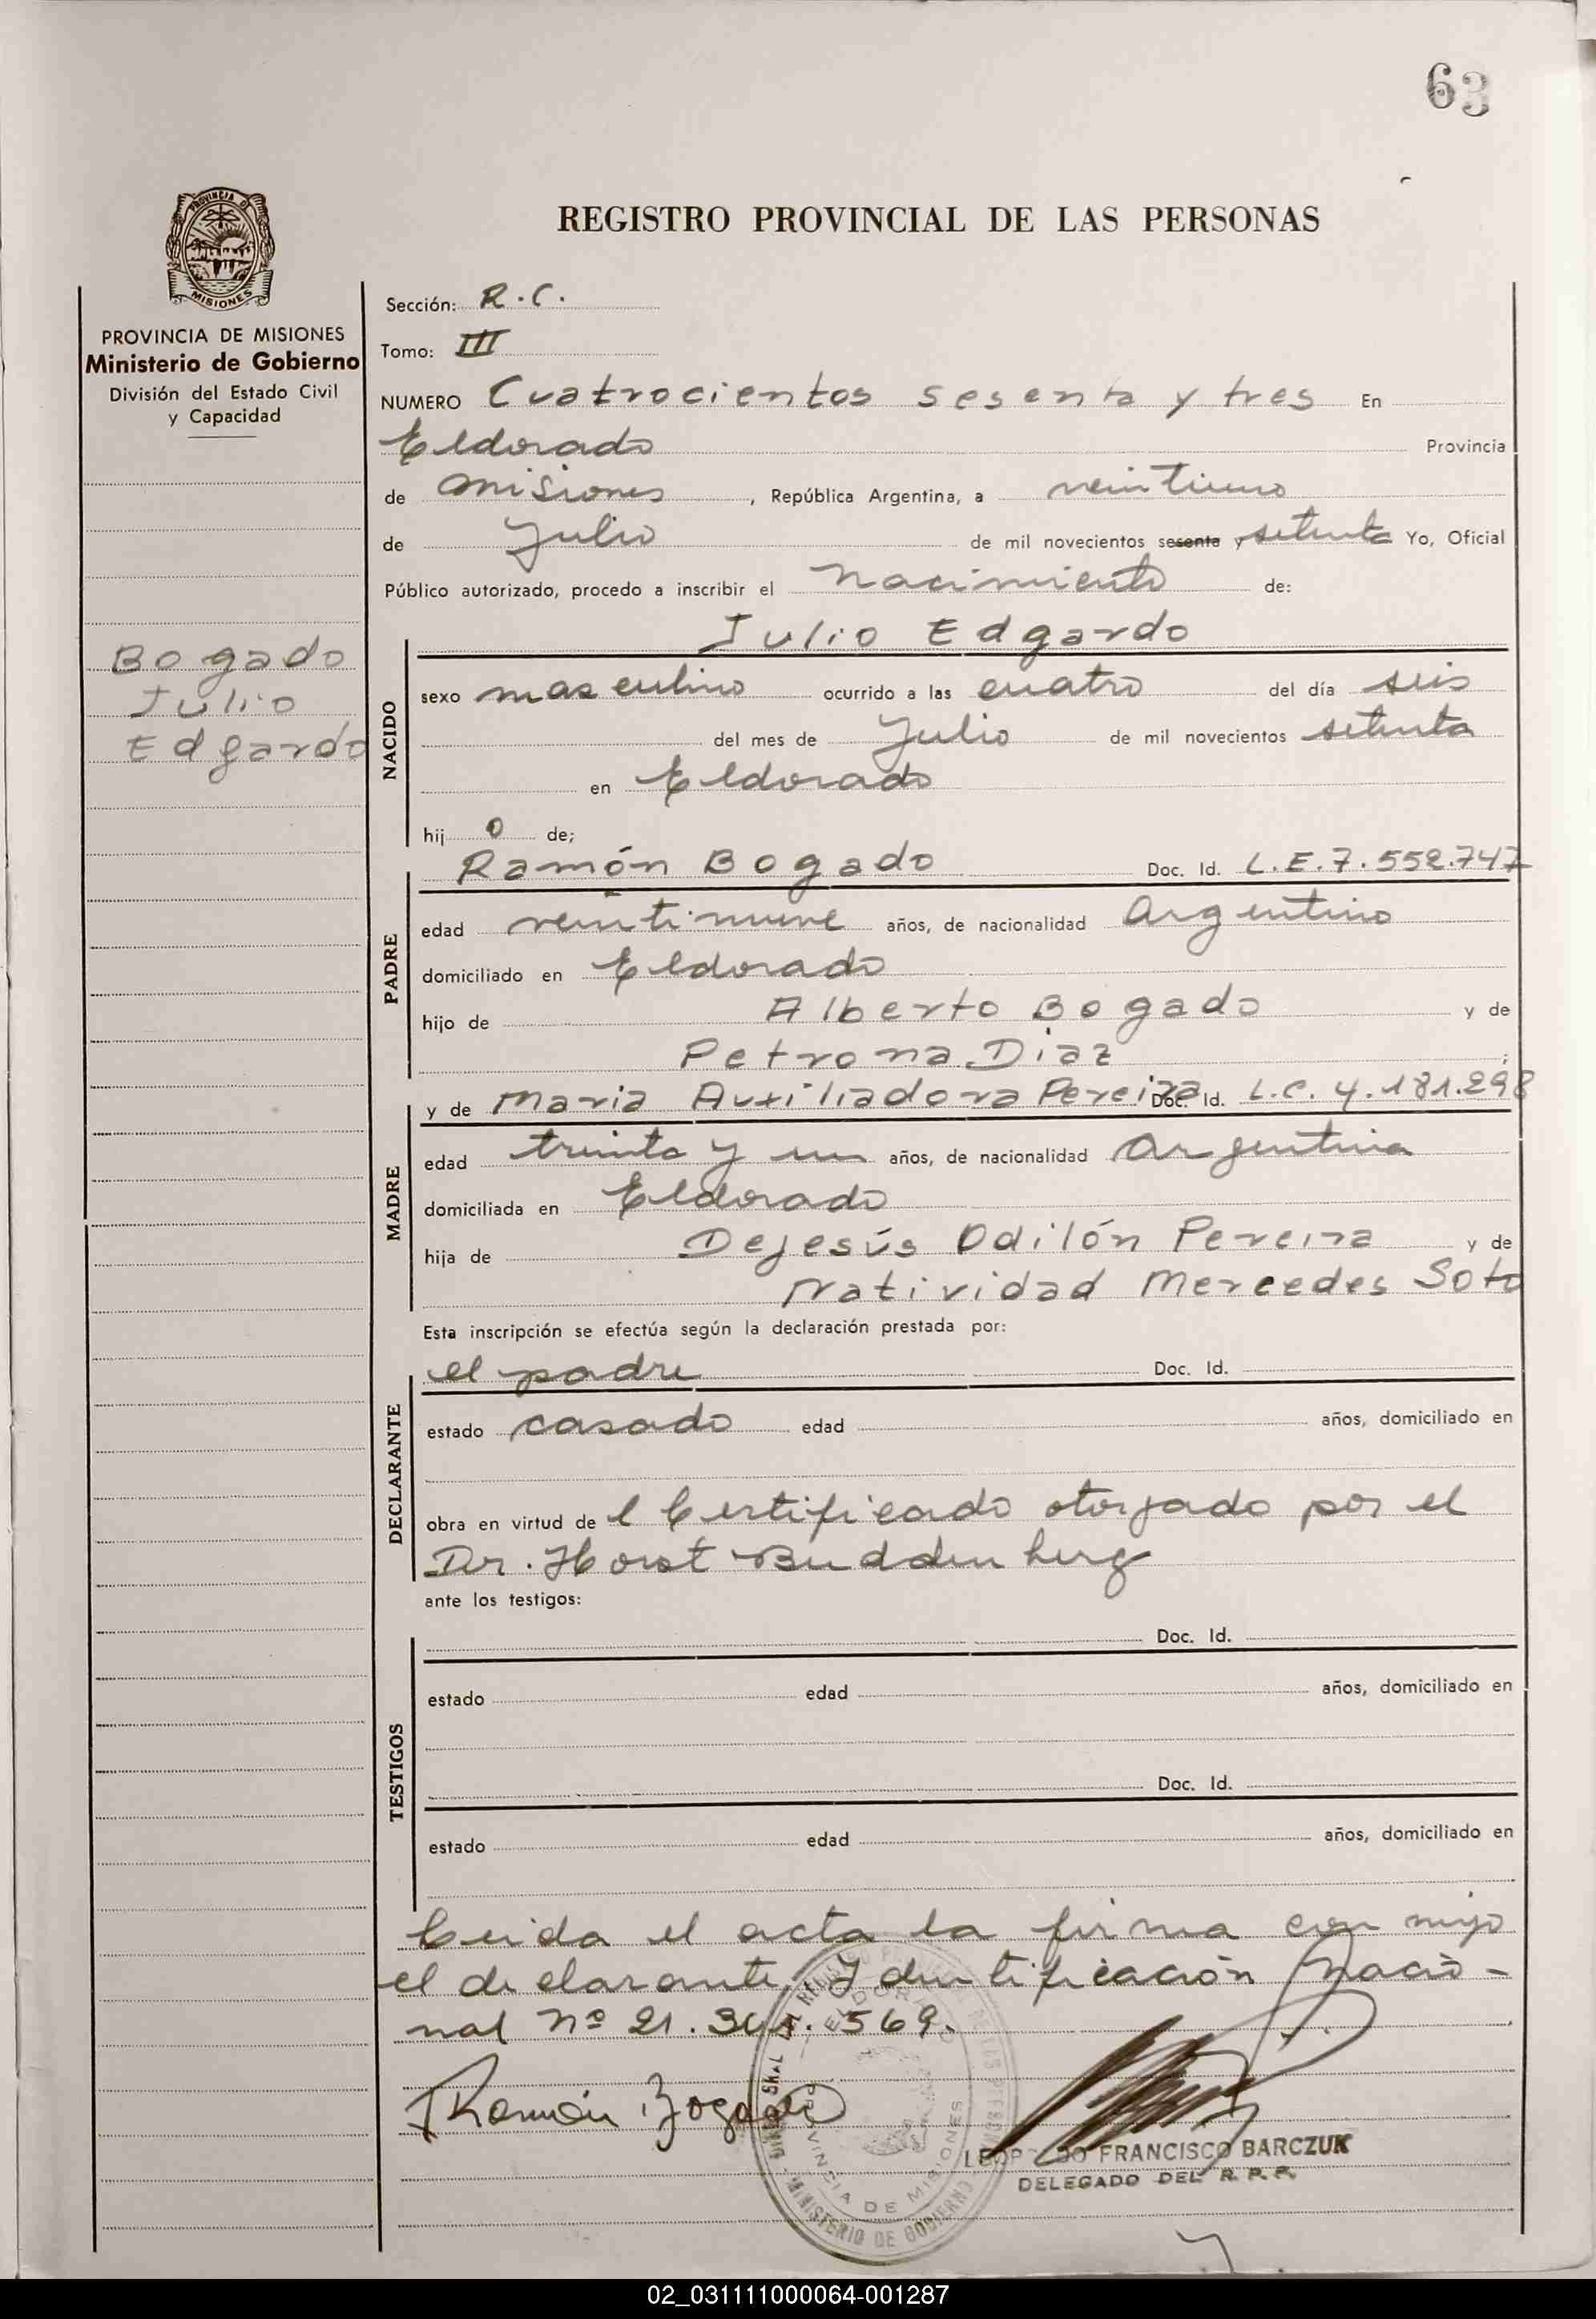 63
PROVINCIA DE MISIONES
REGISTRO PROVINCIAL DE LAS PERSONAS
PROVINCIA DE MISIONES
Ministerio de Gobierno
División del Estado Civil
y Capacidad
Bogado
Julio
Edgardo
Sección: R.C.
Tomo: III
NUMERO Cuatrocientos sesenta y tres En
Eldorado Provincia
de Misiones, República Argentina, a veintiuno
de Julio de mil novecientos sesenta y setenta Yo, Oficial
Público autorizado, procedo a inscribir el nacimiento de:
Julio Edgardo
NACIDO
sexo masculino ocurrido a las cuatro del día seis
del mes de Julio de mil novecientos setenta
en Eldorado
hijo de;
Ramón Bogado Doc. Id. L.E.7.552.747
PADRE
edad veintinueve años, de nacionalidad Argentino
domiciliado en Eldorado
hijo de Alberto Bogado y de
Petrona Diaz ;
y de Maria Auxiliadora Pereira Doc. Id. L.C. 4.181.298
MADRE
edad treinta y un años, de nacionalidad Argentina
domiciliada en Eldorado
hija de Dejesús Odilón Pereira y de
Natividad Mercedes Soto
Esta inscripción se efectúa según la declaración prestada por:
el padre Doc. Id.
DECLARANTE
estado casado edad años, domiciliado en
obra en virtud de l Certificado otorgado por el
Dr. Horst Buddenberg
ante los testigos:
Doc. Id.
TESTIGOS
estado edad años, domiciliado en
Doc. Id.
estado edad años, domiciliado en
Leida el acta la firma con migo
el declarante, Identificación Nacio-
nal nº 21. 569.
Ramón Bogado
ELDORADO
PROVINCIA DE MISIONES
MINISTERIO DE GOBIERNO
FRANCISCO BARCZUK
DELEGADO DEL R. P. P.
02_031111000064-001287